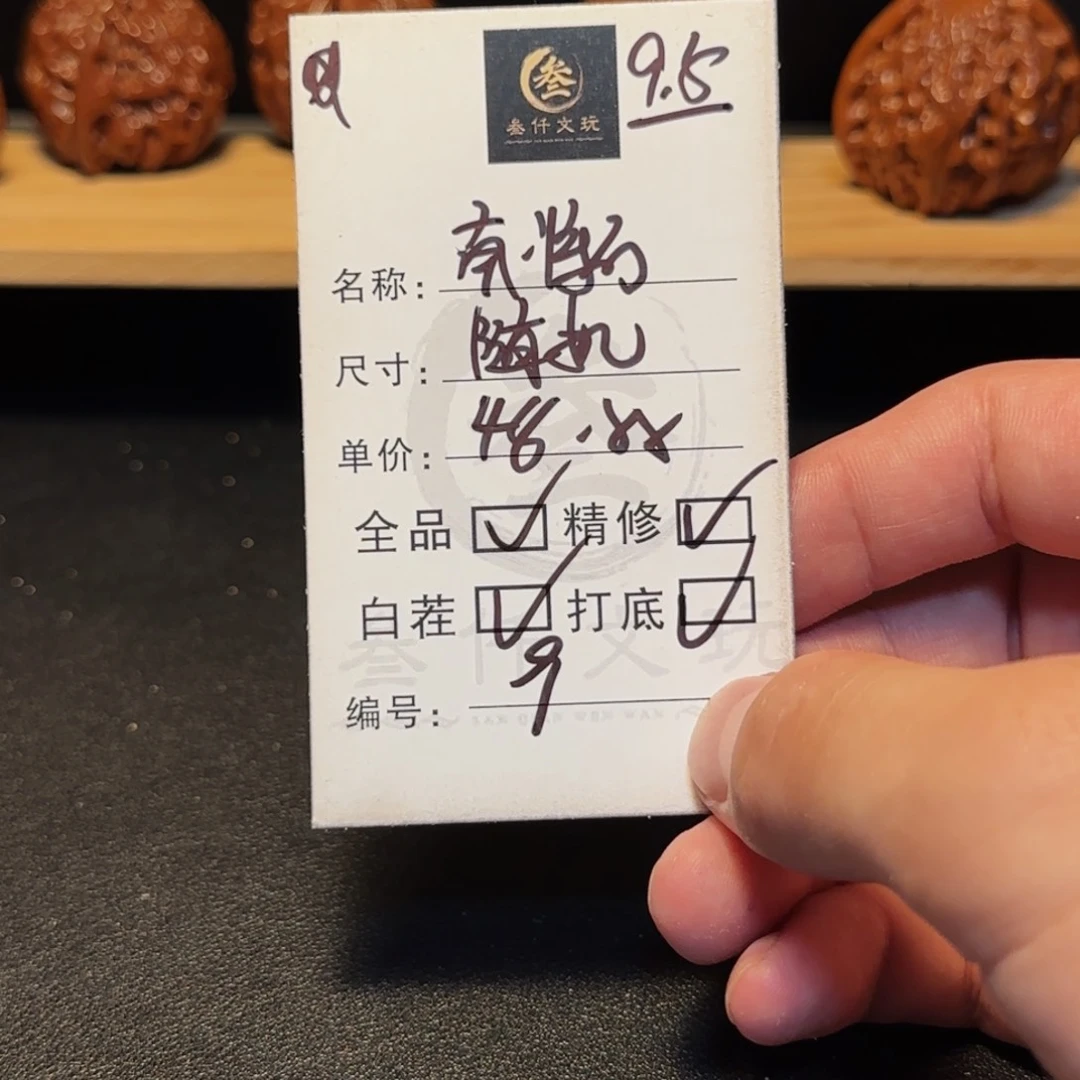 9.5
叁
叁仟文玩
名称：南将
尺寸：随机
单价：48.xx
全品 ✓ 精修 ✓
白茬 ✓ 打底 ✓
编号：9
叁仟文玩
SAN QIAN WEN WAN